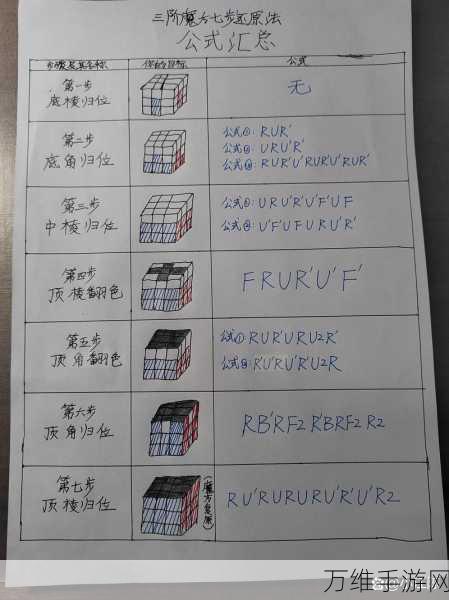 三阶魔方七步还原法
公式汇总
步骤及其名称 你的目标 公式
第一步
底棱归位
无
第二步
底角归位
公式①: RUR'
公式②: URU'R'
公式③: RUR'U'RUR'U'RUR'
第三步
中棱归位
公式①: URU'R'U'F'UF
公式②: U'F'UFURU'R'
第四步
顶棱翻色
FRUR'U'F'
第五步
顶角翻色
公式① RUR'URU2R'
公式② R'U'RU'R'U2R
第六步
顶角归位
RB'RF2R'BRF2R2
第七步
顶棱归位
(魔方复原)
RU'RURURU'R'U'R2
万维手游网